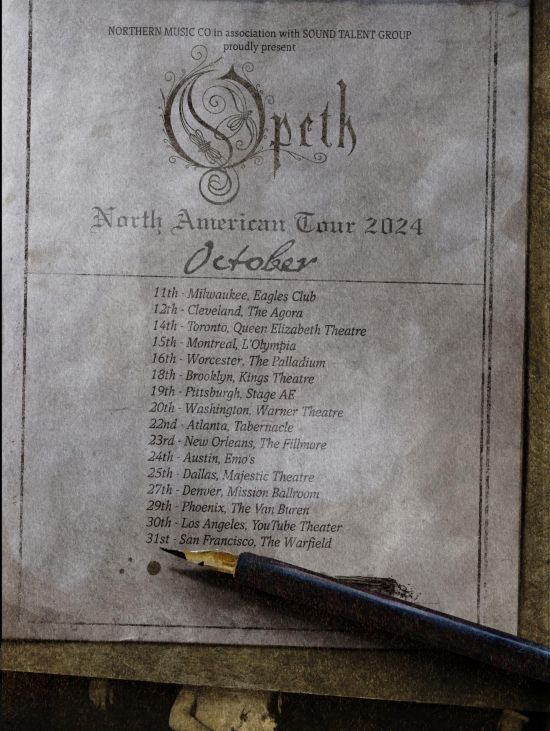 NORTHERN MUSIC CO in association with SOUND TALENT GROUP
proudly present
Opeth
North American Tour 2024
October
11th - Milwaukee, Eagles Club
12th - Cleveland, The Agora
14th - Toronto, Queen Elizabeth Theatre
15th - Montreal, L'Olympia
16th - Worcester, The Palladium
18th - Brooklyn, Kings Theatre
19th - Pittsburgh, Stage AE
20th - Washington, Warner Theatre
22nd - Atlanta, Tabernacle
23rd - New Orleans, The Fillmore
24th - Austin, Emo's
25th - Dallas, Majestic Theatre
27th - Denver, Mission Ballroom
29th - Phoenix, The Van Buren
30th - Los Angeles, YouTube Theater
31st - San Francisco, The Warfield